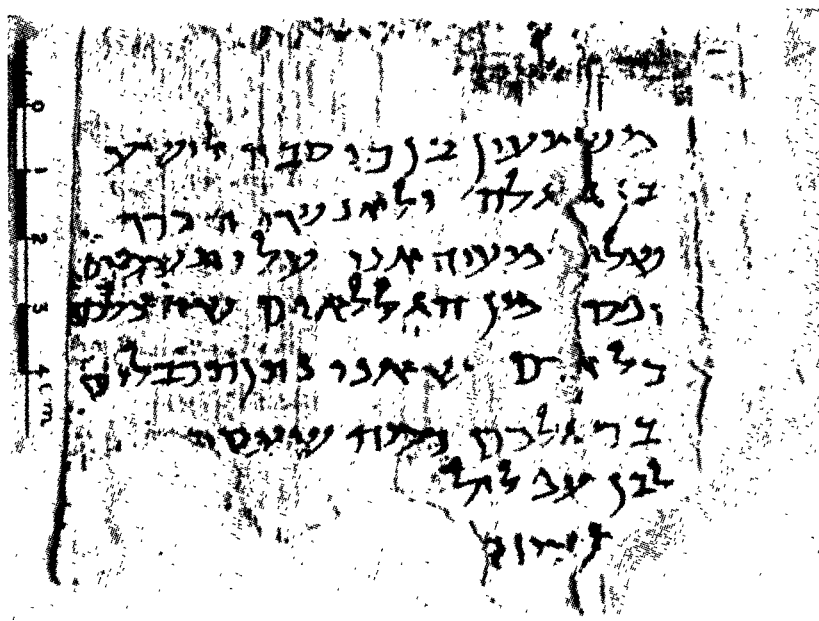 משמעון בן כוסבה לישע
בן גלגלה ולאנשי הכרך
שלום מעיד אני עלי תשמים
יפסד מן הגללאים שהצלכם
כל אדם שאני נתן תכבלים
ברגלכם כמה שעסתי
לבן עפלול
0 1 2 3 4 cm